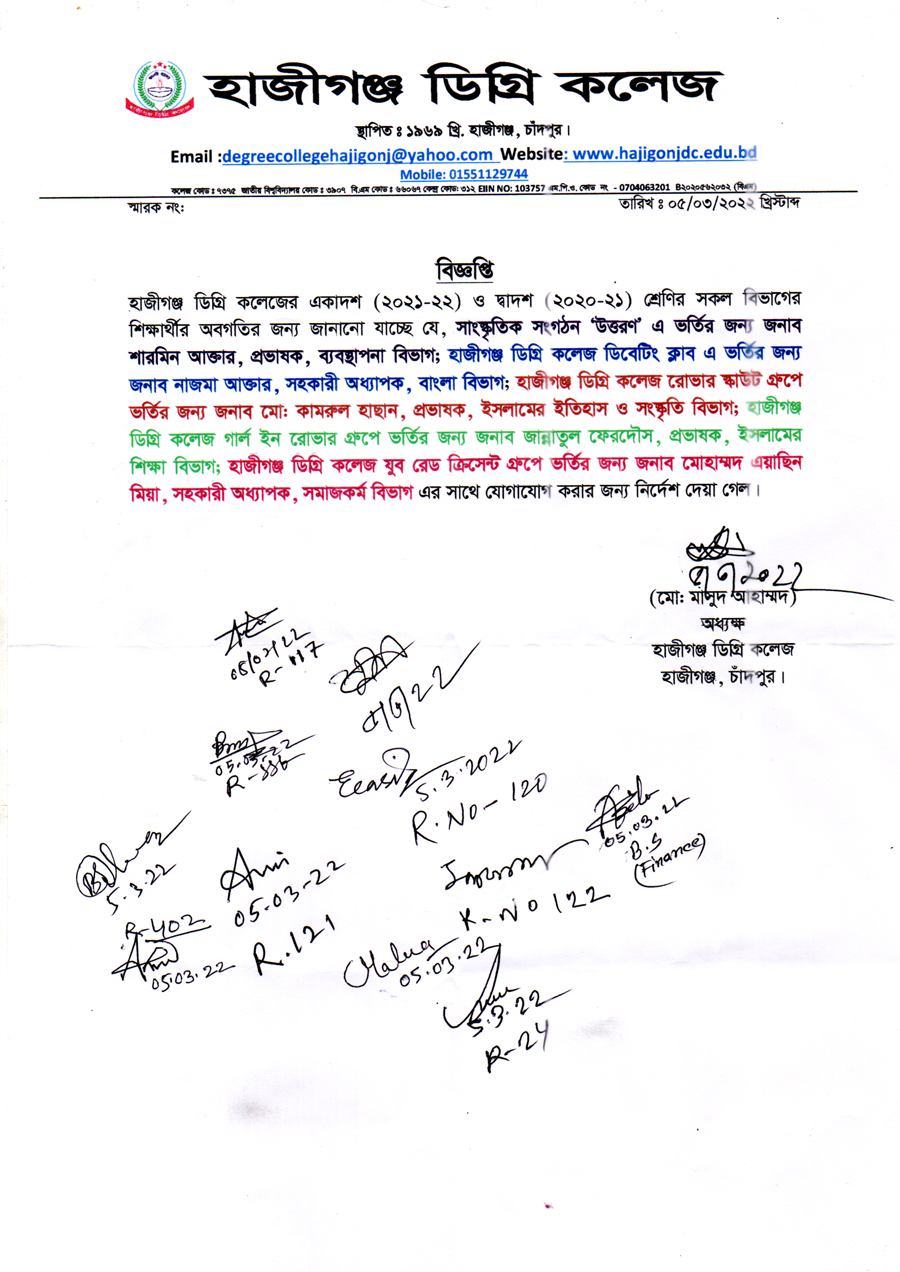 হাজীগঞ্জ ডিগ্রি কলেজ
হাজীগঞ্জ ডিগ্রি কলেজ
স্থাপিত ঃ ১৯৬৯ খ্রি. হাজীগঞ্জ, চাঁদপুর।
Email :degreecollegehajigonj@yahoo.com Website: www.hajigonjdc.edu.bd
Mobile: 01551129744
কলেজ কোড : ৭৩৭৫ জাতীয় বিশ্ববিদ্যালয় কোড : ৩৯০৭ বি.এম কোড : ৬৬০৬৭ কেন্দ্র কোড: ৩১২ EIIN NO: 103757 এম.পি.ও. কোড নং - 0704063201 B২০২০৫৬২০৩২ (বিএম)
স্মারক নং:
তারিখ ঃ ০৫/০৩/২০২২ খ্রিস্টাব্দ
বিজ্ঞপ্তি
হাজীগঞ্জ ডিগ্রি কলেজের একাদশ (২০২১-২২) ও দ্বাদশ (২০২০-২১) শ্রেণির সকল বিভাগের
শিক্ষার্থীর অবগতির জন্য জানানো যাচ্ছে যে, সাংস্কৃতিক সংগঠন 'উত্তরণ' এ ভর্তির জন্য জনাব
শারমিন আক্তার, প্রভাষক, ব্যবস্থাপনা বিভাগ; হাজীগঞ্জ ডিগ্রি কলেজ ডিবেটিং ক্লাব এ ভর্তির জন্য
জনাব নাজমা আক্তার, সহকারী অধ্যাপক, বাংলা বিভাগ; হাজীগঞ্জ ডিগ্রি কলেজ রোভার স্কাউট গ্রুপে
ভর্তির জন্য জনাব মো: কামরুল হাছান, প্রভাষক, ইসলামের ইতিহাস ও সংস্কৃতি বিভাগ; হাজীগঞ্জ
ডিগ্রি কলেজ গার্ল ইন রোভার গ্রুপে ভর্তির জন্য জনাব জান্নাতুল ফেরদৌস, প্রভাষক, ইসলামের
শিক্ষা বিভাগ; হাজীগঞ্জ ডিগ্রি কলেজ যুব রেড ক্রিসেন্ট গ্রুপে ভর্তির জন্য জনাব মোহাম্মদ এয়াছিন
মিয়া, সহকারী অধ্যাপক, সমাজকর্ম বিভাগ এর সাথে যোগাযোগ করার জন্য নির্দেশ দেয়া গেল।
(মো: মাসুদ আহাম্মদ)
অধ্যক্ষ
হাজীগঞ্জ ডিগ্রি কলেজ
হাজীগঞ্জ, চাঁদপুর।
05/03/22
R-117
05.03.22
5.3.2022
R.NO-120
05.03.22
B.S
(Finance)
5.3.22
R-402
05-03-22
R.121
R-NO 122
05.03.22
05.03.22
5.3.22
R-24